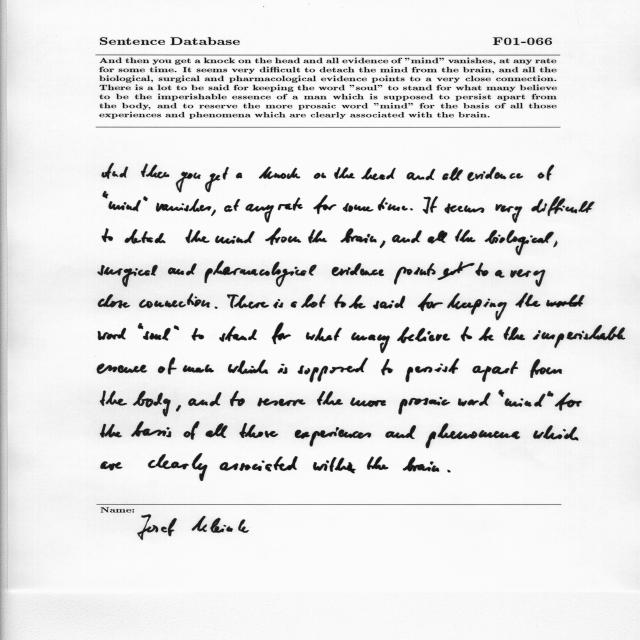 Sentence Database F01-066
And then you get a knock on the head and all evidence of "mind" vanishes, at any rate
for some time. It seems very difficult to detach the mind from the brain, and all the
biological, surgical and pharmacological evidence points to a very close connection.
There is a lot to be said for keeping the word "soul" to stand for what many believe
to be the imperishable essence of a man which is supposed to persist apart from
the body, and to reserve the more prosaic word "mind" for the basis of all those
experiences and phenomena which are clearly associated with the brain.
And then you get a knock on the head and all evidence of
"mind" vanishes, at any rate for some time. It seems very difficult
to detach the mind from the brain, and all the biological,
surgical and pharmacological evidence points to a very
close connection. There is a lot to be said for keeping the
word "soul" to stand for what many believe to be the imperishable
essence of man which is supposed to persist apart from
the body, and to reserve the more prosaic word "mind" for
the basis of all those experiences and phenomena which
are clearly associated with the brain.
Name:
Josef